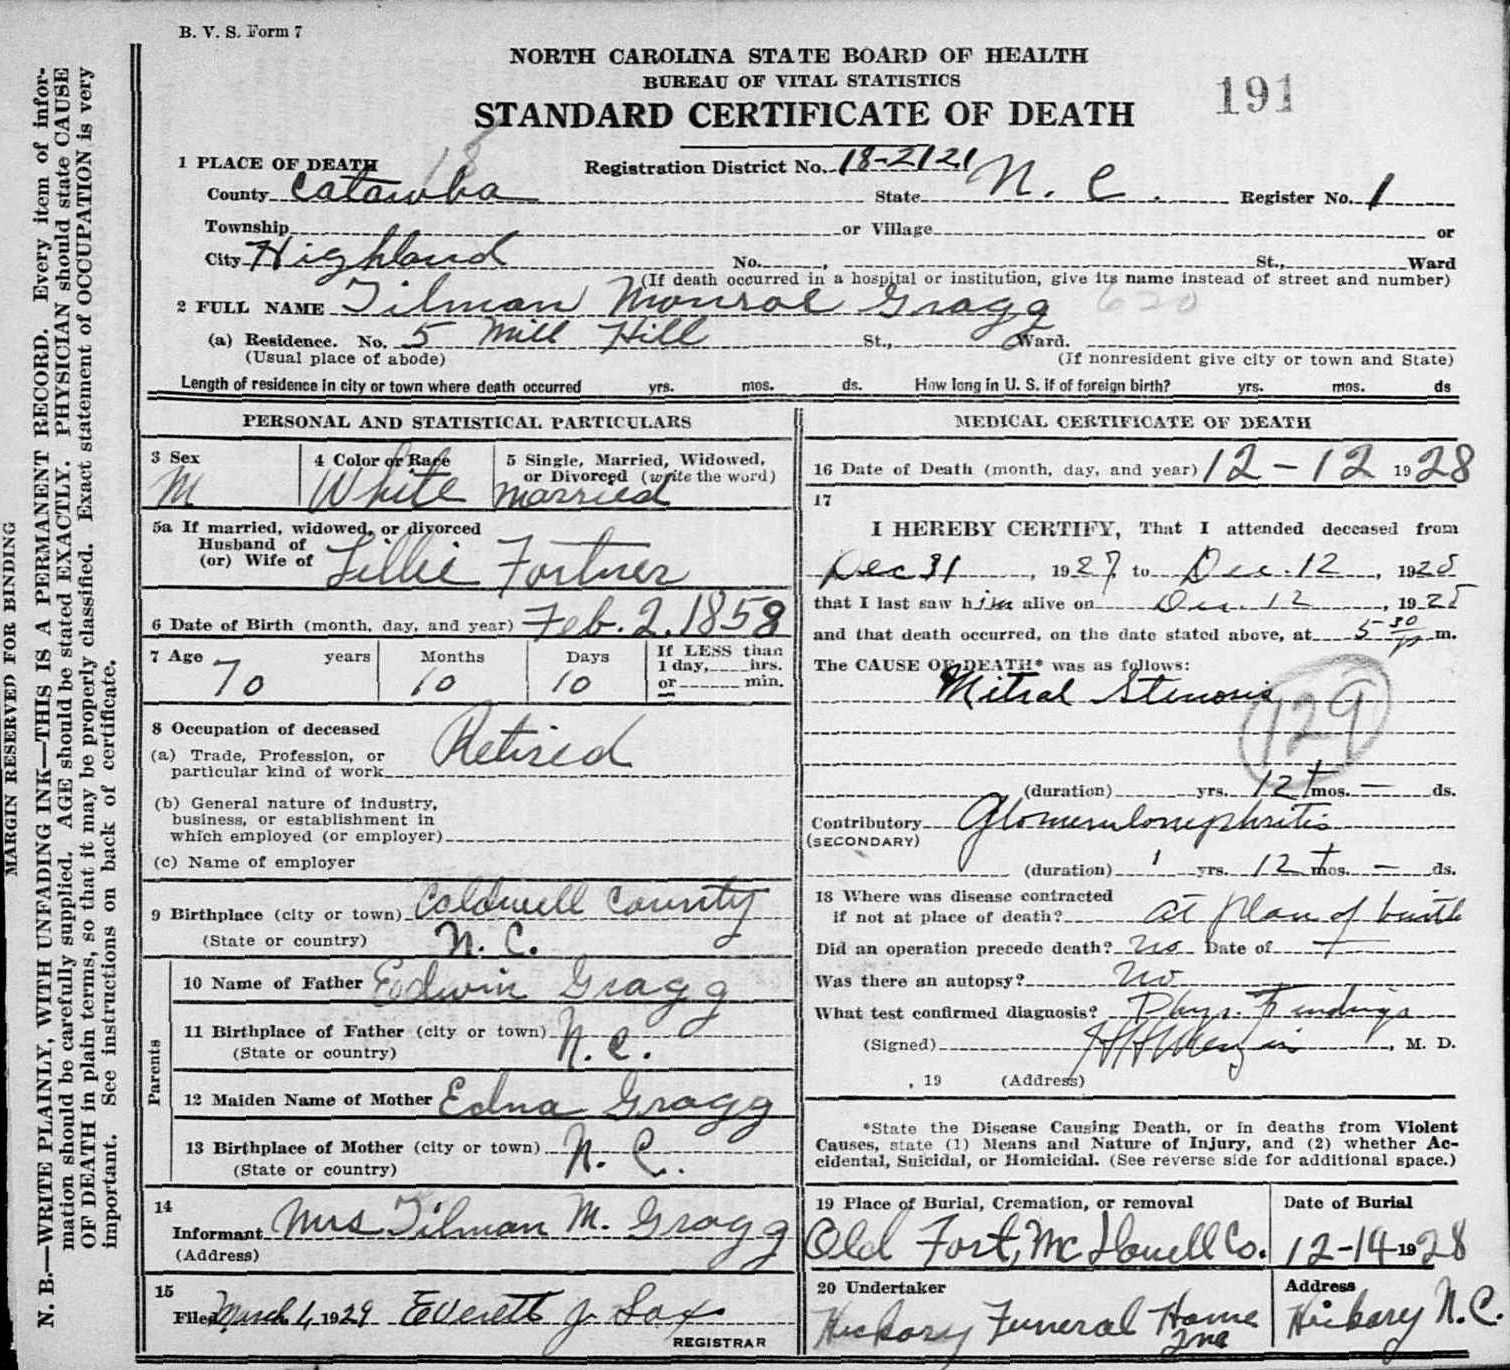 B. V. S. Form 7
NORTH CAROLINA STATE BOARD OF HEALTH
BUREAU OF VITAL STATISTICS
STANDARD CERTIFICATE OF DEATH
191
1 PLACE OF DEATH
18
Registration District No. 18-2121
County Catawba State N. C. Register No. 1
Township or Village or
City Highland No. , St., Ward
(If death occurred in a hospital or institution, give its name instead of street and number)
2 FULL NAME Tilman Monroe Gragg 620
(a) Residence. No. 5 Mill Hill St., Ward.
(Usual place of abode) (If nonresident give city or town and State)
Length of residence in city or town where death occurred yrs. mos. ds. How long in U. S. if of foreign birth? yrs. mos. ds
PERSONAL AND STATISTICAL PARTICULARS
3 Sex
M
4 Color or Race
White
5 Single, Married, Widowed,
or Divorced (write the word)
Married
5a If married, widowed, or divorced
Husband of
(or) Wife of Lillie Fortner
6 Date of Birth (month, day, and year) Feb. 2, 1858
7 Age years Months Days
70 10 10
If LESS than
1 day, hrs.
or min.
8 Occupation of deceased
(a) Trade, Profession, or
particular kind of work Retired
(b) General nature of industry,
business, or establishment in
which employed (or employer)
(c) Name of employer
9 Birthplace (city or town) Caldwell County
(State or country) N. C.
Parents
10 Name of Father Edwin Gragg
11 Birthplace of Father (city or town) N. C.
(State or country)
12 Maiden Name of Mother Edna Gragg
13 Birthplace of Mother (city or town) N. C.
(State or country)
14
Informant Mrs Tilman M. Gragg
(Address)
15
Filed March 1, 1929 Everett J Sox
REGISTRAR
MEDICAL CERTIFICATE OF DEATH
16 Date of Death (month, day, and year) 12-12 1928
17
I HEREBY CERTIFY, That I attended deceased from
Dec 31, 1927, to Dec. 12, 1928
that I last saw him alive on Dec. 12, 1928
and that death occurred, on the date stated above, at 5 30 p m.
The CAUSE OF DEATH* was as follows:
Mitral Stenosis
129
(duration) yrs. 12 + mos. — ds.
Contributory Glomerulonephritis
(SECONDARY)
(duration) 1 yrs. 12 + mos. — ds.
18 Where was disease contracted
if not at place of death? at place of birth
Did an operation precede death? no Date of —
Was there an autopsy? no
What test confirmed diagnosis? Phys. Findings
(Signed) , M. D.
, 19 (Address)
*State the Disease Causing Death, or in deaths from Violent
Causes, state (1) Means and Nature of Injury, and (2) whether Ac-
cidental, Suicidal, or Homicidal. (See reverse side for additional space.)
19 Place of Burial, Cremation, or removal
Old Fort, McDowell Co.
Date of Burial
12-14-1928
20 Undertaker
Hickory Funeral Home
Inc
Address
Hickory N.C.
MARGIN RESERVED FOR BINDING
N. B.—WRITE PLAINLY, WITH UNFADING INK—THIS IS A PERMANENT RECORD. Every item of infor-
mation should be carefully supplied. AGE should be stated EXACTLY. PHYSICIAN should state CAUSE
OF DEATH in plain terms, so that it may be properly classified. Exact statement of OCCUPATION is very
important. See instructions on back of certificate.